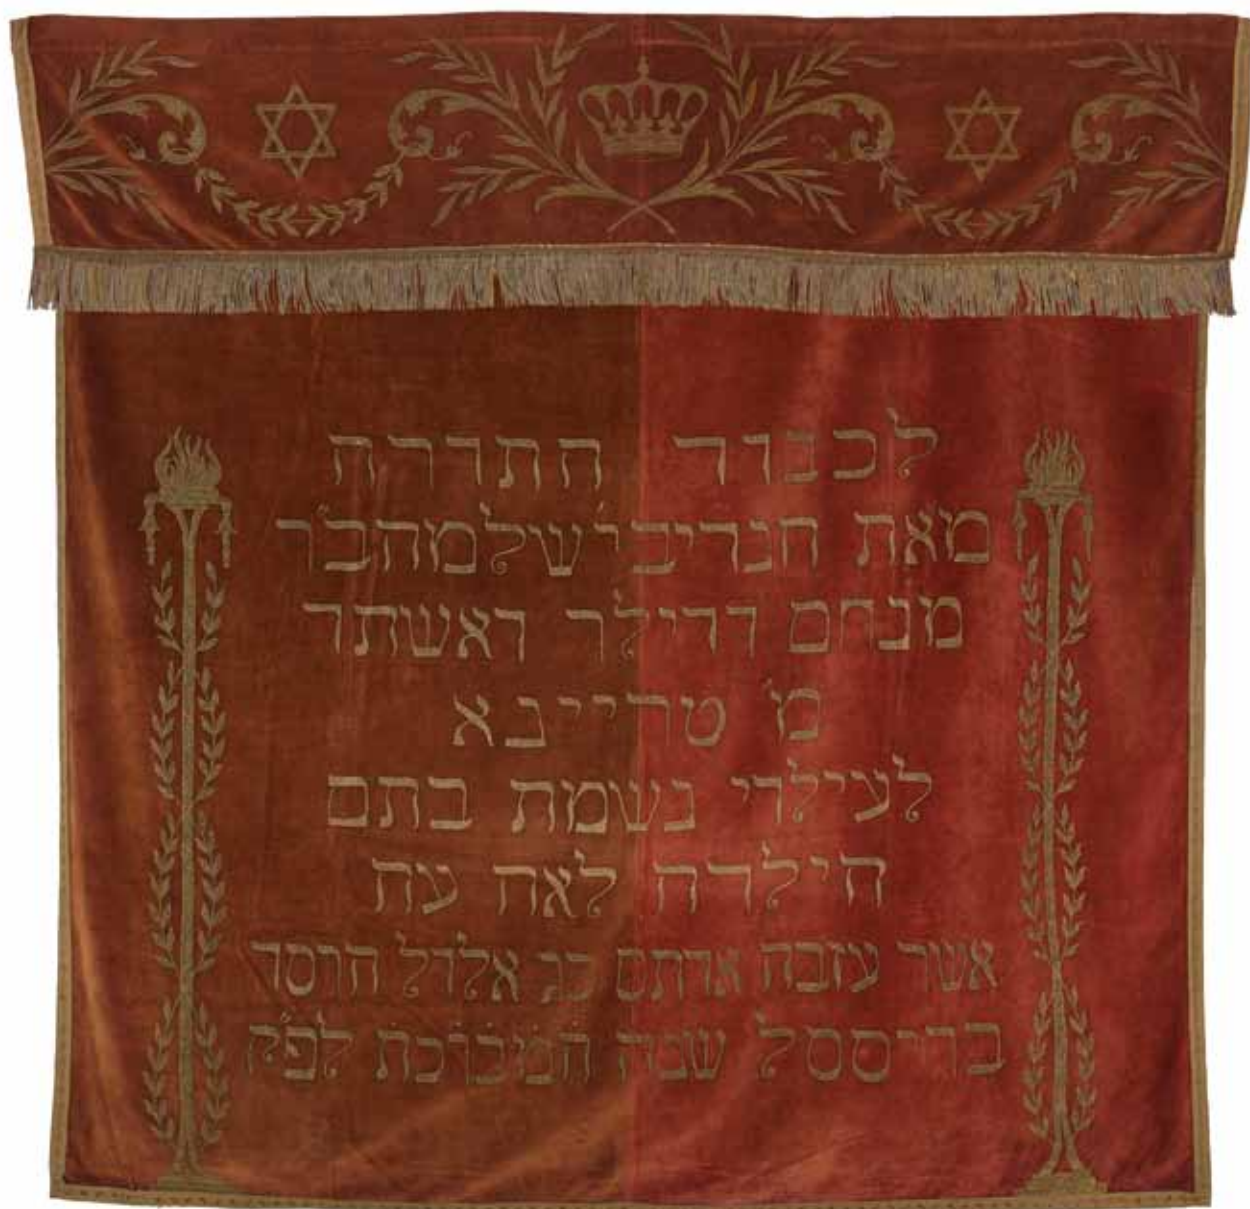 לכבוד התורה
מאת הנדיב ר' שלמה ב"ר
מנחם ואשתו
מ' טרייבא
לעילוי נשמת בתם
הילדה לאה ע"ה
אשר עזבה אותם כג אלול הוסד
בריססל שנה לפ"ק